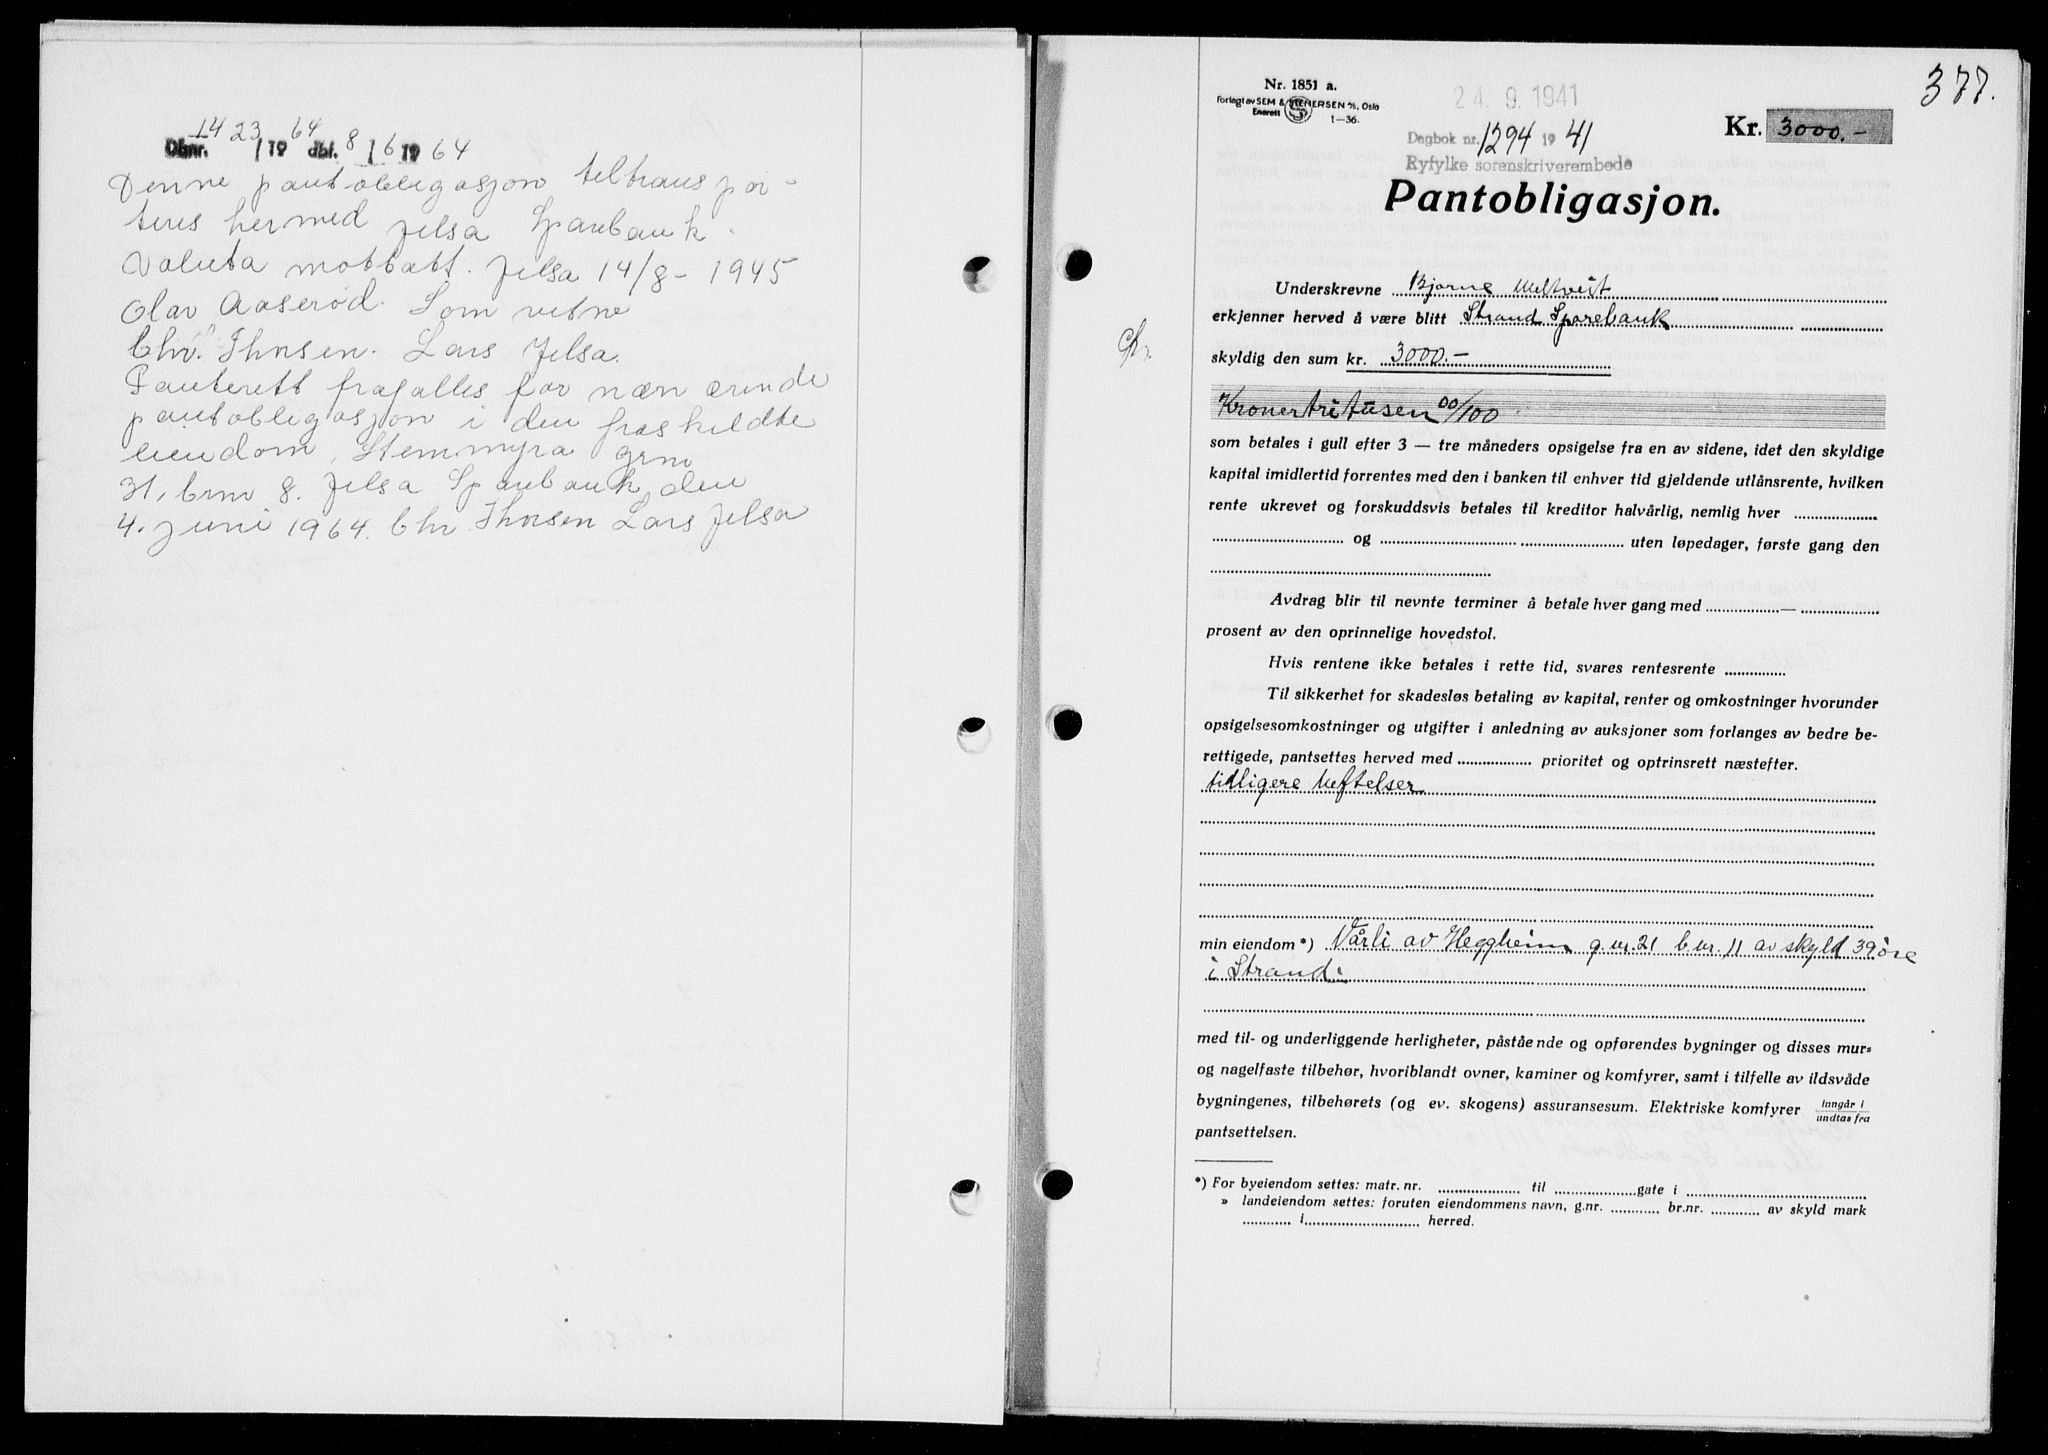 Dbnr. 1423/1964 dbf. 8/6 1964
Denne pantobligasjon teltranspor-
teres hermed Jelsa Sparebank.
Valuta mottatt. Jelsa 14/8 - 1945
Olav Aaserød. Som vitne
Chr. Thorsen. Lars Jelsa.
Panterett frafalles for nærværende
pantobligasjon i den fraskildte
eiendom, Stemmyra grno
31, brno 8. Jelsa Sparebank, den
4. juni 1964. Chr Thorsen Lars Jelsa
377.
Nr. 1851 a.
Forlagt av SEM & STENERSEN A/S, Oslo
Enerett S
1—36.
24. 9. 1941
Dagbok nr. 1294 1941
Ryfylke sorenskriverembede
Kr. 3000.-
Pantobligasjon.
Underskrevne Bjarne Meltveit
erkjenner herved å være blitt Strand Sparebank
skyldig den sum kr. 3000.-
Kronertritusen 00/100
som betales i gull efter 3 — tre måneders opsigelse fra en av sidene, idet den skyldige
kapital imidlertid forrentes med den i banken til enhver tid gjeldende utlånsrente, hvilken
rente ukrevet og forskuddsvis betales til kreditor halvårlig, nemlig hver
og uten løpedager, første gang den
Avdrag blir til nevnte terminer å betale hver gang med —
prosent av den oprinnelige hovedstol.
Hvis rentene ikke betales i rette tid, svares rentesrente
Til sikkerhet for skadesløs betaling av kapital, renter og omkostninger hvorunder
opsigelsesomkostninger og utgifter i anledning av auksjoner som forlanges av bedre be-
rettigede, pantsettes herved med prioritet og optrinsrett næstefter.
tidligere heftelser
min eiendom *) Vårli av Heggheim g.nr. 21 b.nr. 11 av skyld 39 øre
i Strand.
med til- og underliggende herligheter, påstående og opførendes bygninger og disses mur-
og nagelfaste tilbehør, hvoriblandt ovner, kaminer og komfyrer, samt i tilfelle av ildsvåde
bygningenes, tilbehørets (og ev. skogens) assuransesum. Elektriske komfyrer inngår i / undtas fra
pantsettelsen.
*) For byeiendom settes: matr. nr. til gate i
» landeiendom settes: foruten eiendommens navn, g.nr. br.nr. av skyld mark
i herred.